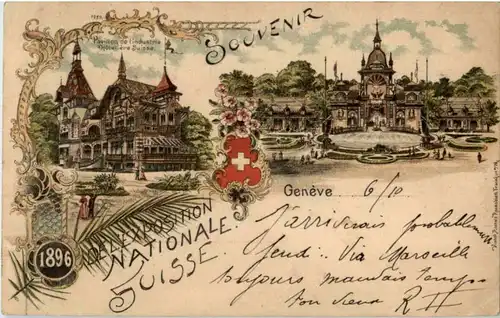 SOUVENIR
Pavillon de l'Industrie
Hôtelière Suisse
Genève 6/10
1896
DE L'EXPOSITION
NATIONALE
SUISSE.
J'arriverais probablement
jeudi: Via Marseille
toujours mauvais temps
ton vieux R H